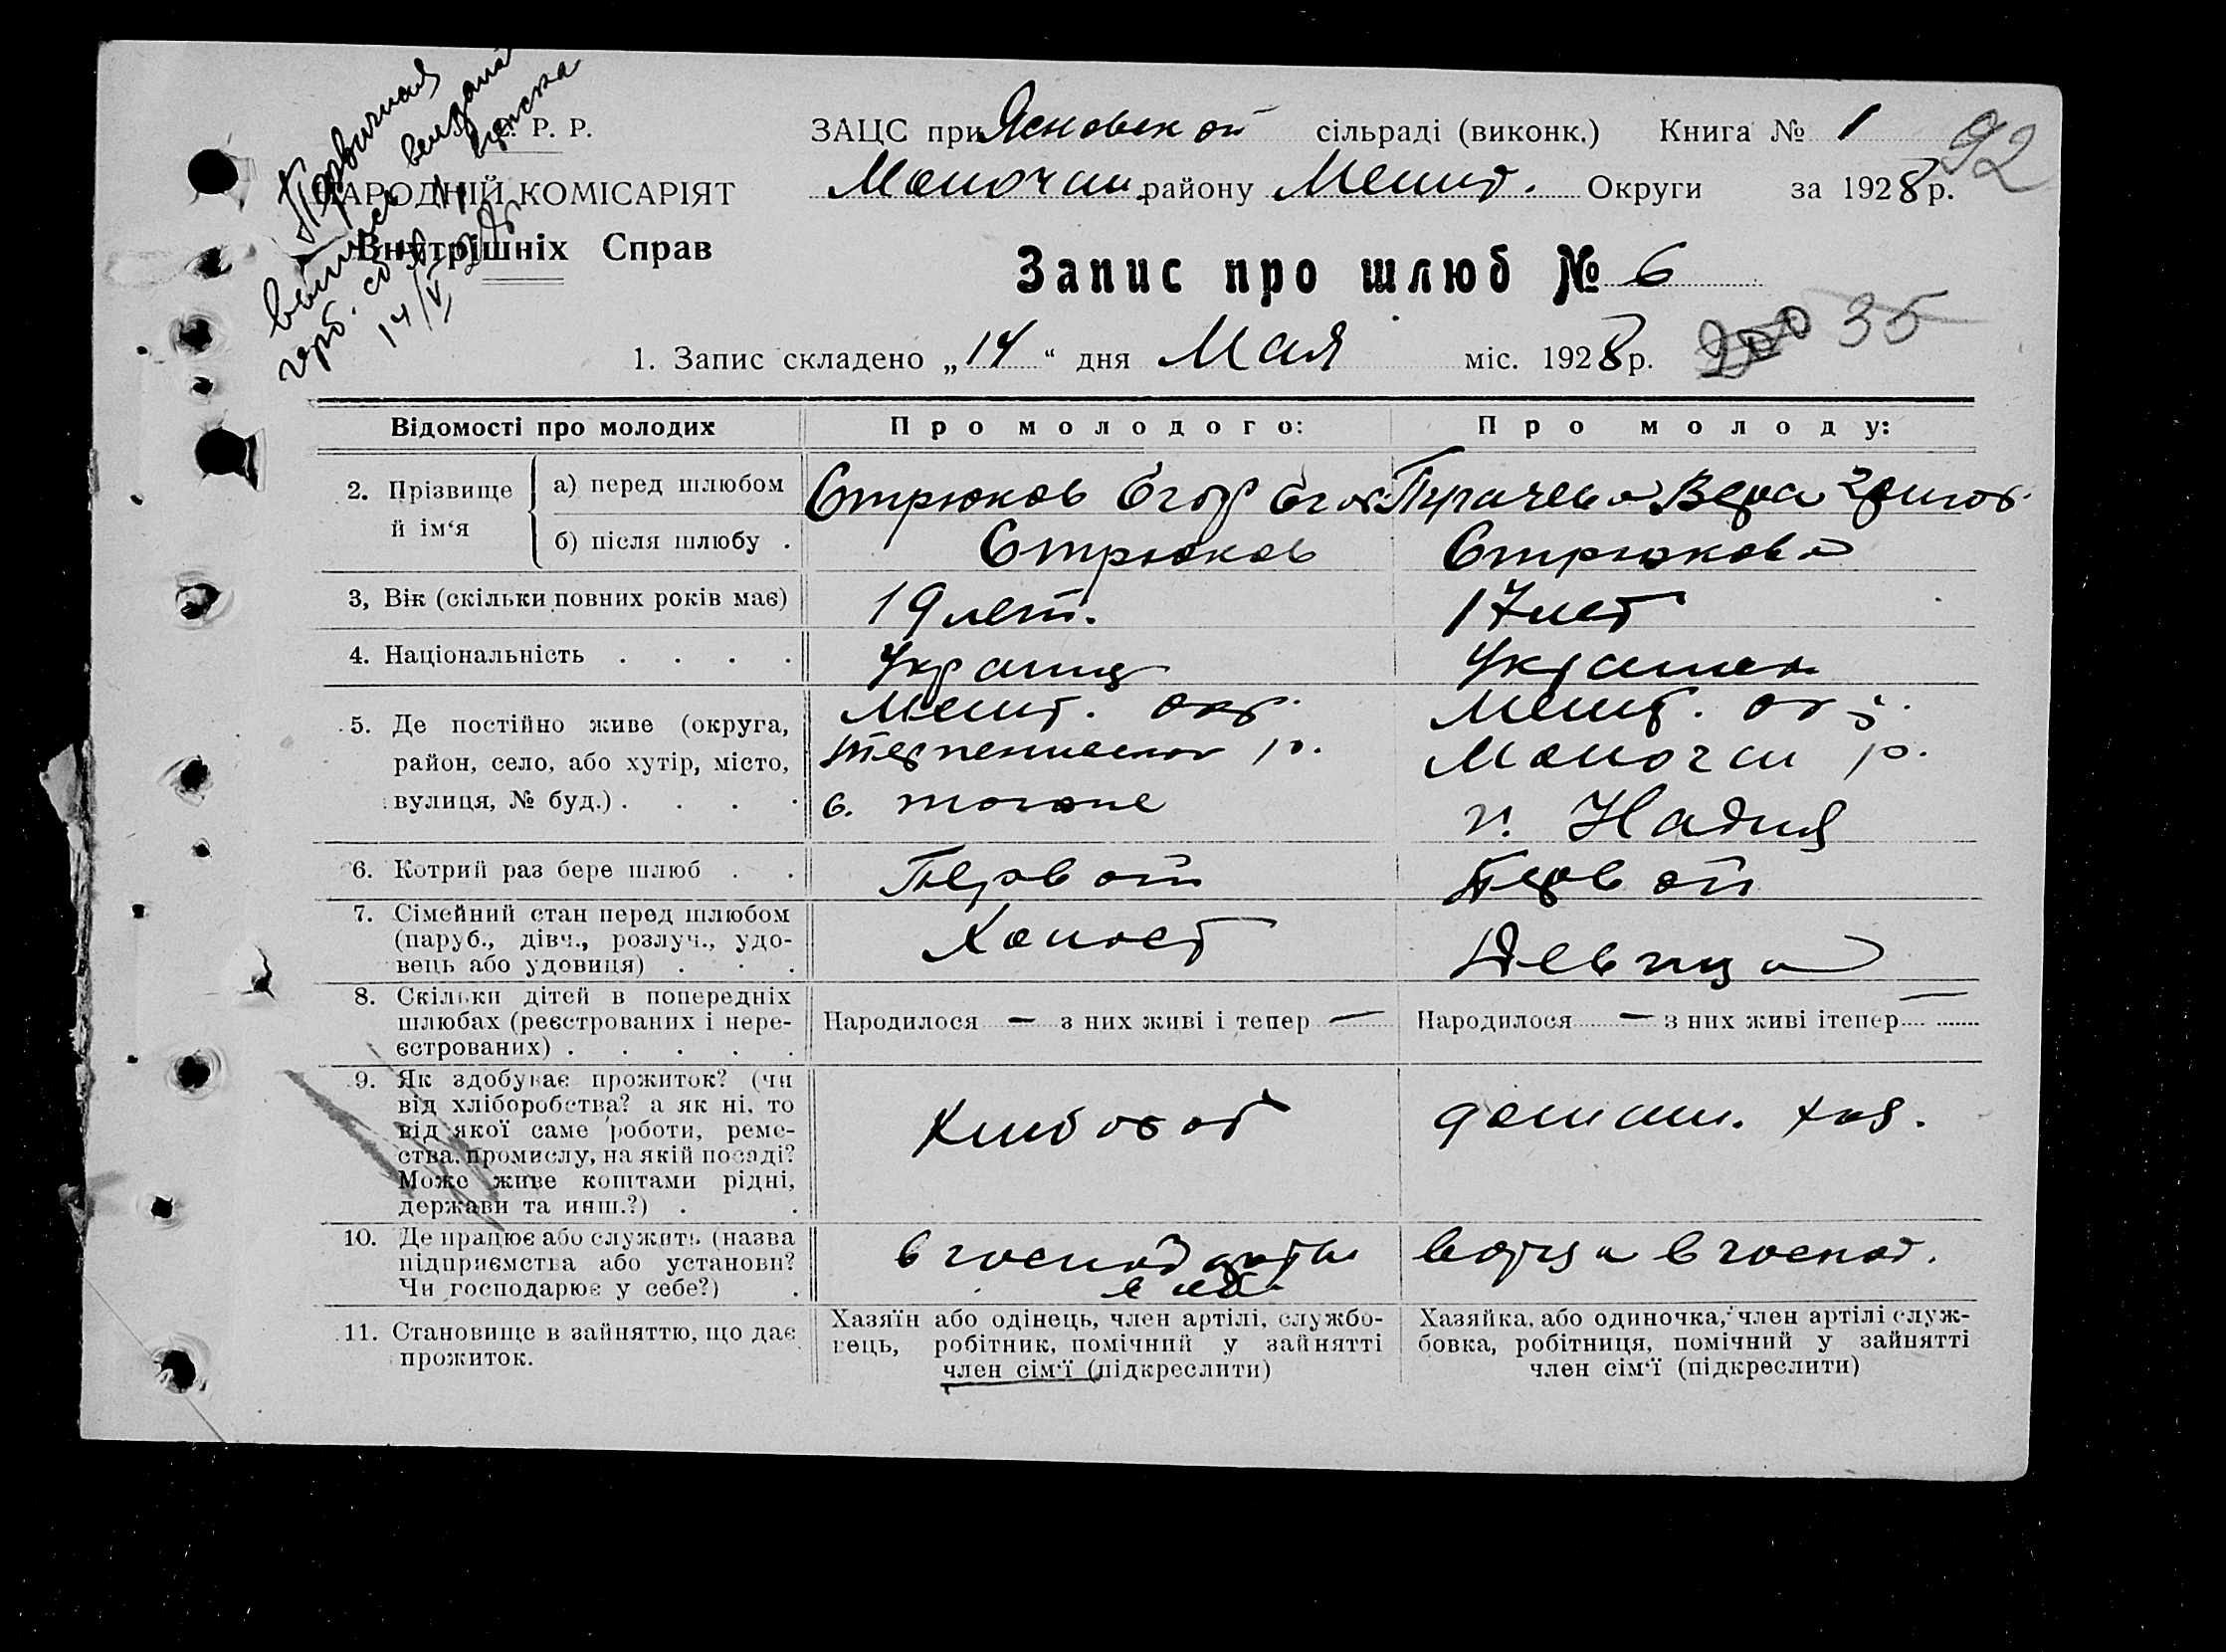 Первичная
выпись выдана
герб. сб. 1 р. взыска
14/V 28
Р. Р.
НАРОДНІЙ КОМІСАРІЯТ
Внутрішніх Справ
ЗАЦС при Ясновской сільраді (виконк.) Книга № 1
92
Молочан. району Мелит. Округи за 1928 р.
Запис про шлюб № 6
1. Запис складено „14“ дня Мая міс. 1928 р.
200 35
Відомості про молодих Про молодого: Про молоду:
2. Прізвище й ім‘я
а) перед шлюбом Стрюков Егор Егор. Вера Григор.
б) після шлюбу . Стрюков Стрюкова
3, Вік (скільки повних років має) 19 лет. 17 лет
4. Національність . . . . Украинц Украинка
5. Де постійно живе (округа, Мелит. окр. Мелит. окр.
район, село, або хутір, місто, р. Молочан р.
вулиця, № буд.) . . . . с. п. Надия
6. Котрий раз бере шлюб . . Первый Первый
7. Сімейний стан перед шлюбом
(паруб., дівч., розлуч., удо-
вець або удовиця) . . . Холост Девица
8. Скільки дітей в попередніх
шлюбах (реєстрованих і нере-
єстрованих) . . . . .
Народилося — з них живі і тепер —
Народилося — з них живі ітепер —
9. Як здобуває прожиток? (чи
від хліборобства? а як ні, то
від якої саме роботи, реме-
ства, промислу, на якій посаді?
Може живе коштами рідні,
держави та инш.?) . .
Хлибороб домаш. хоз.
10. Де працює або служить (назва
підприємства або установи?
Чи господарює у себе?) .
в господ. отца в господ.
11. Становище в зайняттю, що дає
прожиток.
Хазяїн або одінець, член артілі, службо-
вець, робітник, помічний у зайнятті
член сім‘ї (підкреслити)
Хазяйка, або одиночка, член артілі служ-
бовка, робітниця, помічний у зайнятті
член сім‘ї (підкреслити)